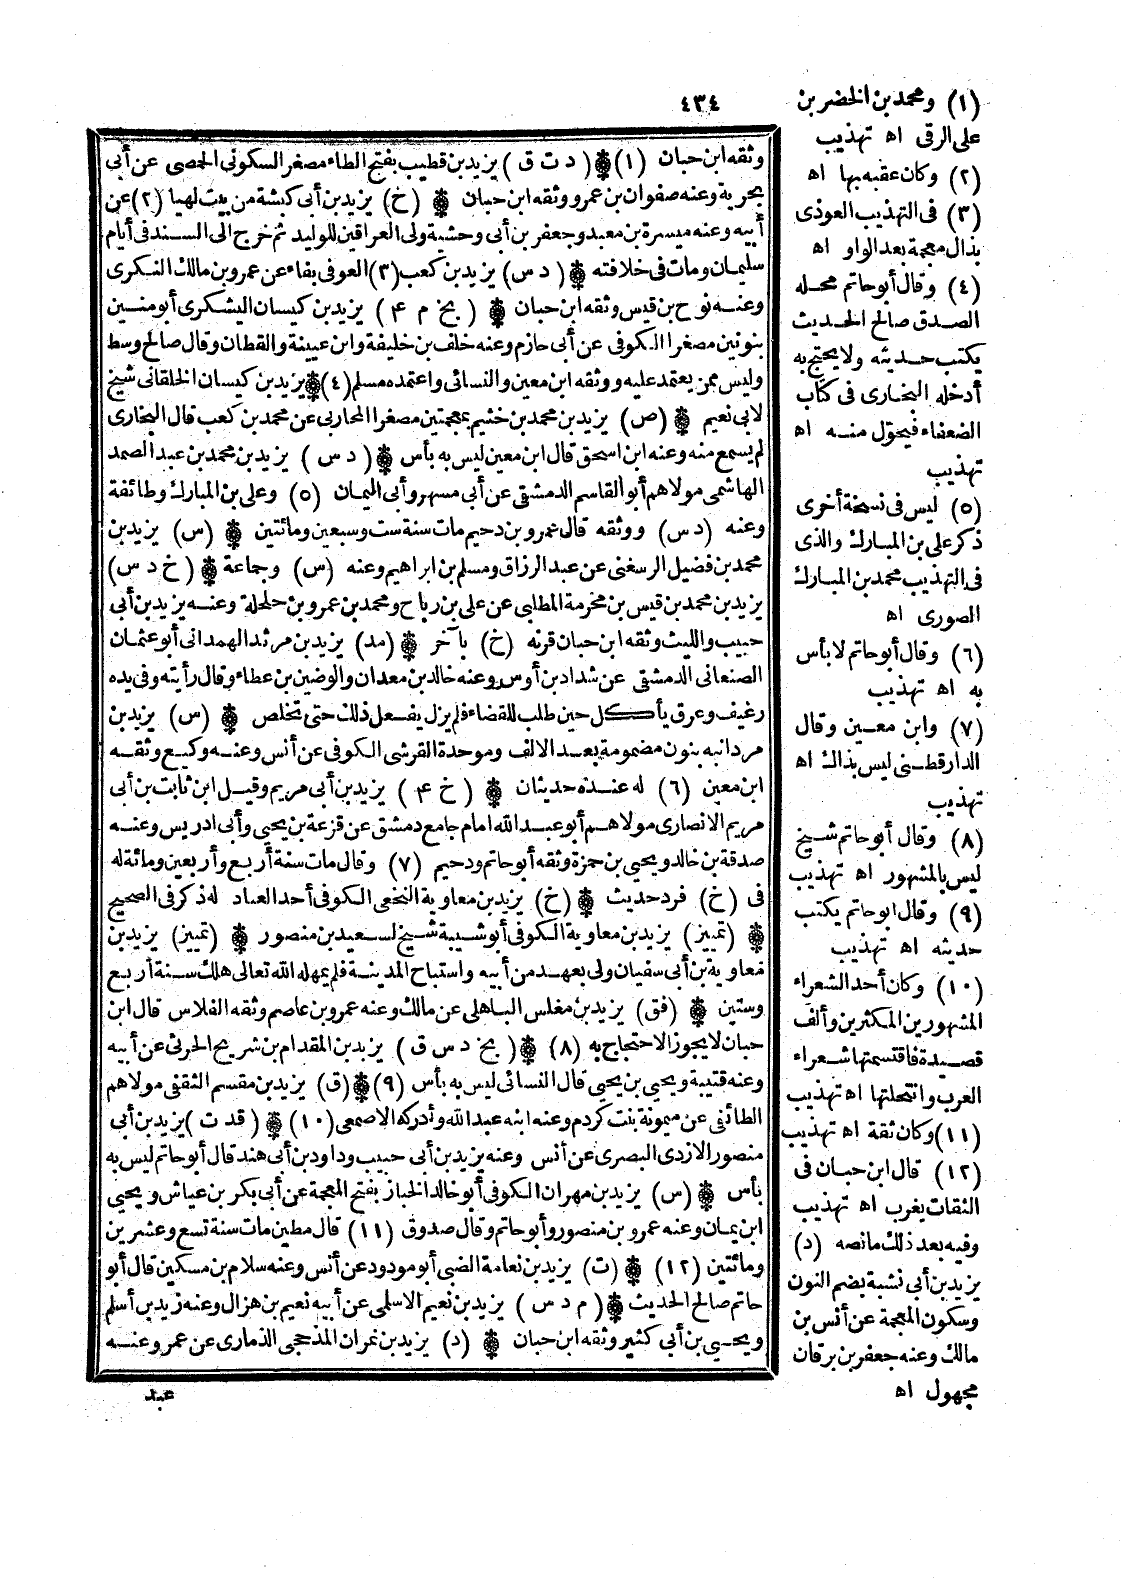 ٤٣٤
وثقه ابن حبان (١) ❁ ( د ت ق ) يزيد بن قطيب بفتح الطاء مصغر السكونى الحمصى عن أبى
بحرية وعنه صفوان بن عمرو وثقه ابن حبان ❁ (خ) يزيد بن أبى كبشة من بيت لهيا (٢) عن
أبيه وعنه ميسرة بن معبد وجعفر بن أبى وحشية ولى العراقين للوليد ثم خرج الى السند فى أيام
سليمان ومات فى خلافته ❁ ( د س ) يزيد بن كعب (٣) العوفى بفاء عن عمرو بن مالك النكرى
وعنه نوح بن قيس وثقه ابن حبان ❁ ( بخ م ٤ ) يزيد بن كيسان اليشكرى أبو منين
بنونين مصغرا الكوفى عن أبى حازم وعنه خلف بن خليفة وابن عيينة والقطان وقال صالح وسط
وليس ممن يعتمد عليه ووثقه ابن معين والنسائى واعتمده مسلم (٤) ❁ يزيد بن كيسان الخلقانى شيخ
لابى نعيم ❁ (ص) يزيد بن محمد بن خثيم بمعجمتين مصغرا المحاربى عن محمد بن كعب قال البخارى
لم يسمع منه وعنه ابن اسحق قال ابن معين ليس به بأس ❁ ( د س ) يزيد بن محمد بن عبد الصمد
الهاشمى مولاهم أبو القاسم الدمشقى عن أبى مسهر وأبى اليمان (٥) وعلى بن المبارك وطائفة
وعنه (د س) ووثقه قال عمرو بن دحيم مات سنة ست وسبعين ومائتين ❁ (س) يزيد بن
محمد بن فضيل الرسغنى عن عبد الرزاق ومسلم بن ابراهيم وعنه (س) وجماعة ❁ ( خ د س )
يزيد بن محمد بن قيس بن مخرمة المطلبى عن على بن رباح ومحمد بن عمرو بن حلحلة وعنه يزيد بن أبى
حبيب والليث وثقه ابن حبان قرنه (خ) بآخر ❁ (مد) يزيد بن مرثد الهمدانى أبو عثمان
الصنعانى الدمشقى عن شداد بن أوس وعنه خالد بن معدان والوضين بن عطاء وقال رأيته وفى يده
رغيف وعرق يأكل حين طلب للقضاء فلم يزل يفعل ذلك حتى تخلص ❁ (س) يزيد بن
مردانبه بنون مضمومة بعد الالف وموحدة القرشى الكوفى عن أنس وعنه وكيع وثقه
ابن معين (٦) له عنده حديثان ❁ ( خ ٤ ) يزيد بن أبى مريم وقيل ابن ثابت بن أبى
مريم الانصارى مولاهم أبو عبد الله امام جامع دمشق عن قزعة بن يحيى وأبى ادريس وعنه
صدقة بن خالد ويحيى بن حمزة وثقه أبو حاتم ودحيم (٧) وقال مات سنة أربع وأربعين ومائة له
فى (خ) فرد حديث ❁ (خ) يزيد بن معاوية النخعى الكوفى أحد العباد له ذكر فى الصحيح
❁ (تمييز) يزيد بن معاوية الكوفى أبو شيبة شيخ لسعيد بن منصور ❁ (تمييز) يزيد بن
معاوية بن أبى سفيان ولى بعهد من أبيه واستباح المدينة فلم يمهله الله تعالى هلك سنة أربع
وستين ❁ (فق) يزيد بن مغلس الباهلى عن مالك وعنه عمرو بن عاصم وثقه الفلاس قال ابن
حبان لا يجوز الاحتجاج به (٨) ❁ ( بخ د س ق ) يزيد بن المقدام بن شريح الحرثى عن أبيه
وعنه قتيبة ويحيى بن يحيى قال النسائى ليس به بأس (٩) ❁ (ق) يزيد بن مقسم الثقفى مولاهم
الطائفى عن ميمونة بنت كردم وعنه ابنه عبد الله وأدركه الاصمعى (١٠) ❁ ( قد ت ) يزيد بن أبى
منصور الازدى البصرى عن أنس وعنه يزيد بن أبى حبيب وداود بن أبى هند قال أبو حاتم ليس به
بأس ❁ (س) يزيد بن مهران الكوفى أبو خالد الخباز بفتح المعجمة عن أبى بكر بن عياش ويحيى
ابن يمان وعنه عمرو بن منصور وأبو حاتم وقال صدوق (١١) قال مطين مات سنة تسع وعشرين
ومائتين (١٢) ❁ (ت) يزيد بن نعامة الضبى أبو مودود عن أنس وعنه سلام بن مسكين قال أبو
حاتم صالح الحديث ❁ ( م د س ) يزيد بن نعيم الاسلمى عن أبيه نعيم بن هزال وعنه زيد بن أسلم
ويحيى بن أبى كثير وثقه ابن حبان ❁ (د) يزيد بن نمران المذحجى الذمارى عن عمر وعنه
عبد
(١) ومحمد بن الخضر بن
على الرقى اه تهذيب
(٢) وكان عقبه بها اه
(٣) فى التهذيب العوذى
بذال معجمة بعد الواو اه
(٤) وقال أبو حاتم محله
الصدق صالح الحديث
يكتب حديثه ولا يحتج به
أدخله البخارى فى كتاب
الضعفاء فيحول منه اه
تهذيب
(٥) ليس فى نسخة أخرى
ذكر على بن المبارك والذى
فى التهذيب محمد بن المبارك
الصورى اه
(٦) وقال أبو حاتم لا بأس
به اه تهذيب
(٧) وابن معين وقال
الدارقطنى ليس بذالك اه
تهذيب
(٨) وقال أبو حاتم شيخ
ليس بالمشهور اه تهذيب
(٩) وقال ابو حاتم يكتب
حديثه اه تهذيب
(١٠) وكان أحد الشعراء
المشهورين المكثرين وألف
قصيدة فاقتسمتها شعراء
العرب وانتحلتها اه تهذيب
(١١) وكان ثقة اه تهذيب
(١٢) قال ابن حبان فى
الثقات يغرب اه تهذيب
وفيه بعد ذلك ما نصه (د)
يزيد بن أبى نشبة بضم النون
وسكون المعجمة عن أنس بن
مالك وعنه جعفر بن برقان
مجهول اه